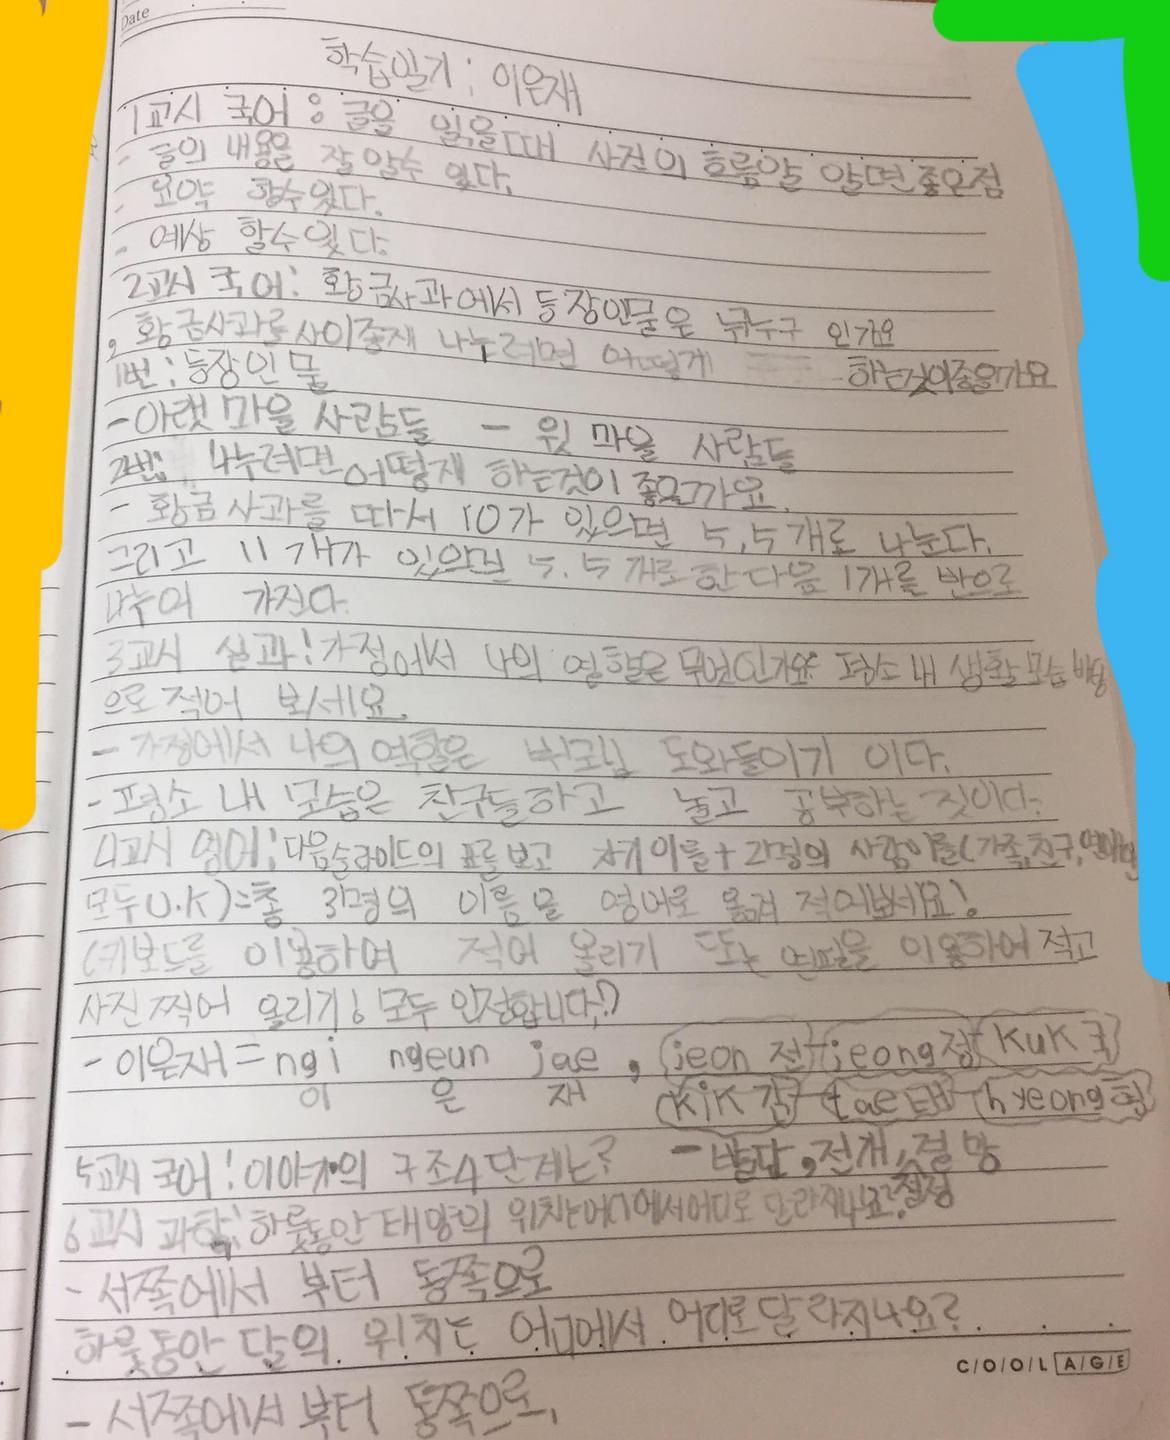 Date
학습일기 : 이은재
1교시 국어 : 글을 읽을때 사건의 흐름알 알면좋은점
- 글의 내용을 잘 알수 있다.
- 요약 할수있다.
- 예상 할수있다.
2교시 국어: 황금사과에서 등장인물은 누구 인가요
, 황금사과를 사이좋재 나누려면 어떻게 하는것이좋을가요
1번 : 등장인물
- 아랫마을 사람들 - 윗 마을 사람들
2번: 나누려면 어떻재 하는것이 좋을가요.
- 황금사과를 따서 10가 있으면 5, 5개로 나눈다.
그리고 11개가 있으면 5, 5개로한다음 1개를 반으로
나누어 가진다.
3교시 실과! 가정에서 나의 역할은 무엇인가요? 평소 내 생활모습 바탕
으로 적어 보세요.
- 가정에서 나의 역할은 부모님 도와들이기 이다.
- 평소 내 모습은 친구들하고 놀고 공부하는 것이다.
4교시 영어! 다음슬라이드의 표를 보고 자기이름+2명의 사람이름(가족,친구,연예인
모두O.K)=총 3명의 이름을 영어로 옮겨 적어보세요!
(키보드를 이용하여 적어 올리기 또는 연필을 이용하여 적고
사진 찍어 올리기! 모두 인정합니다!)
- 이은재 = ngi ngeun jae , (jeon 전)-(jeong정)-(KuK 국)
이 은 재 (KiK 김)-(tae태)-(hyeong형)
5교시 국어! 이야기의 구조4단계는? - 발단,전개,절망
절정
6교시 과학! 하룻동안 태양의 위치는어디에서어디로 달라지나요?
- 서쪽에서 부터 동쪽으로
하룻동안 달의 위치는 어디에서 어디로달라지나요?
- 서쪽에서 부터 동쪽으로,
C/O/O/L A/G/E